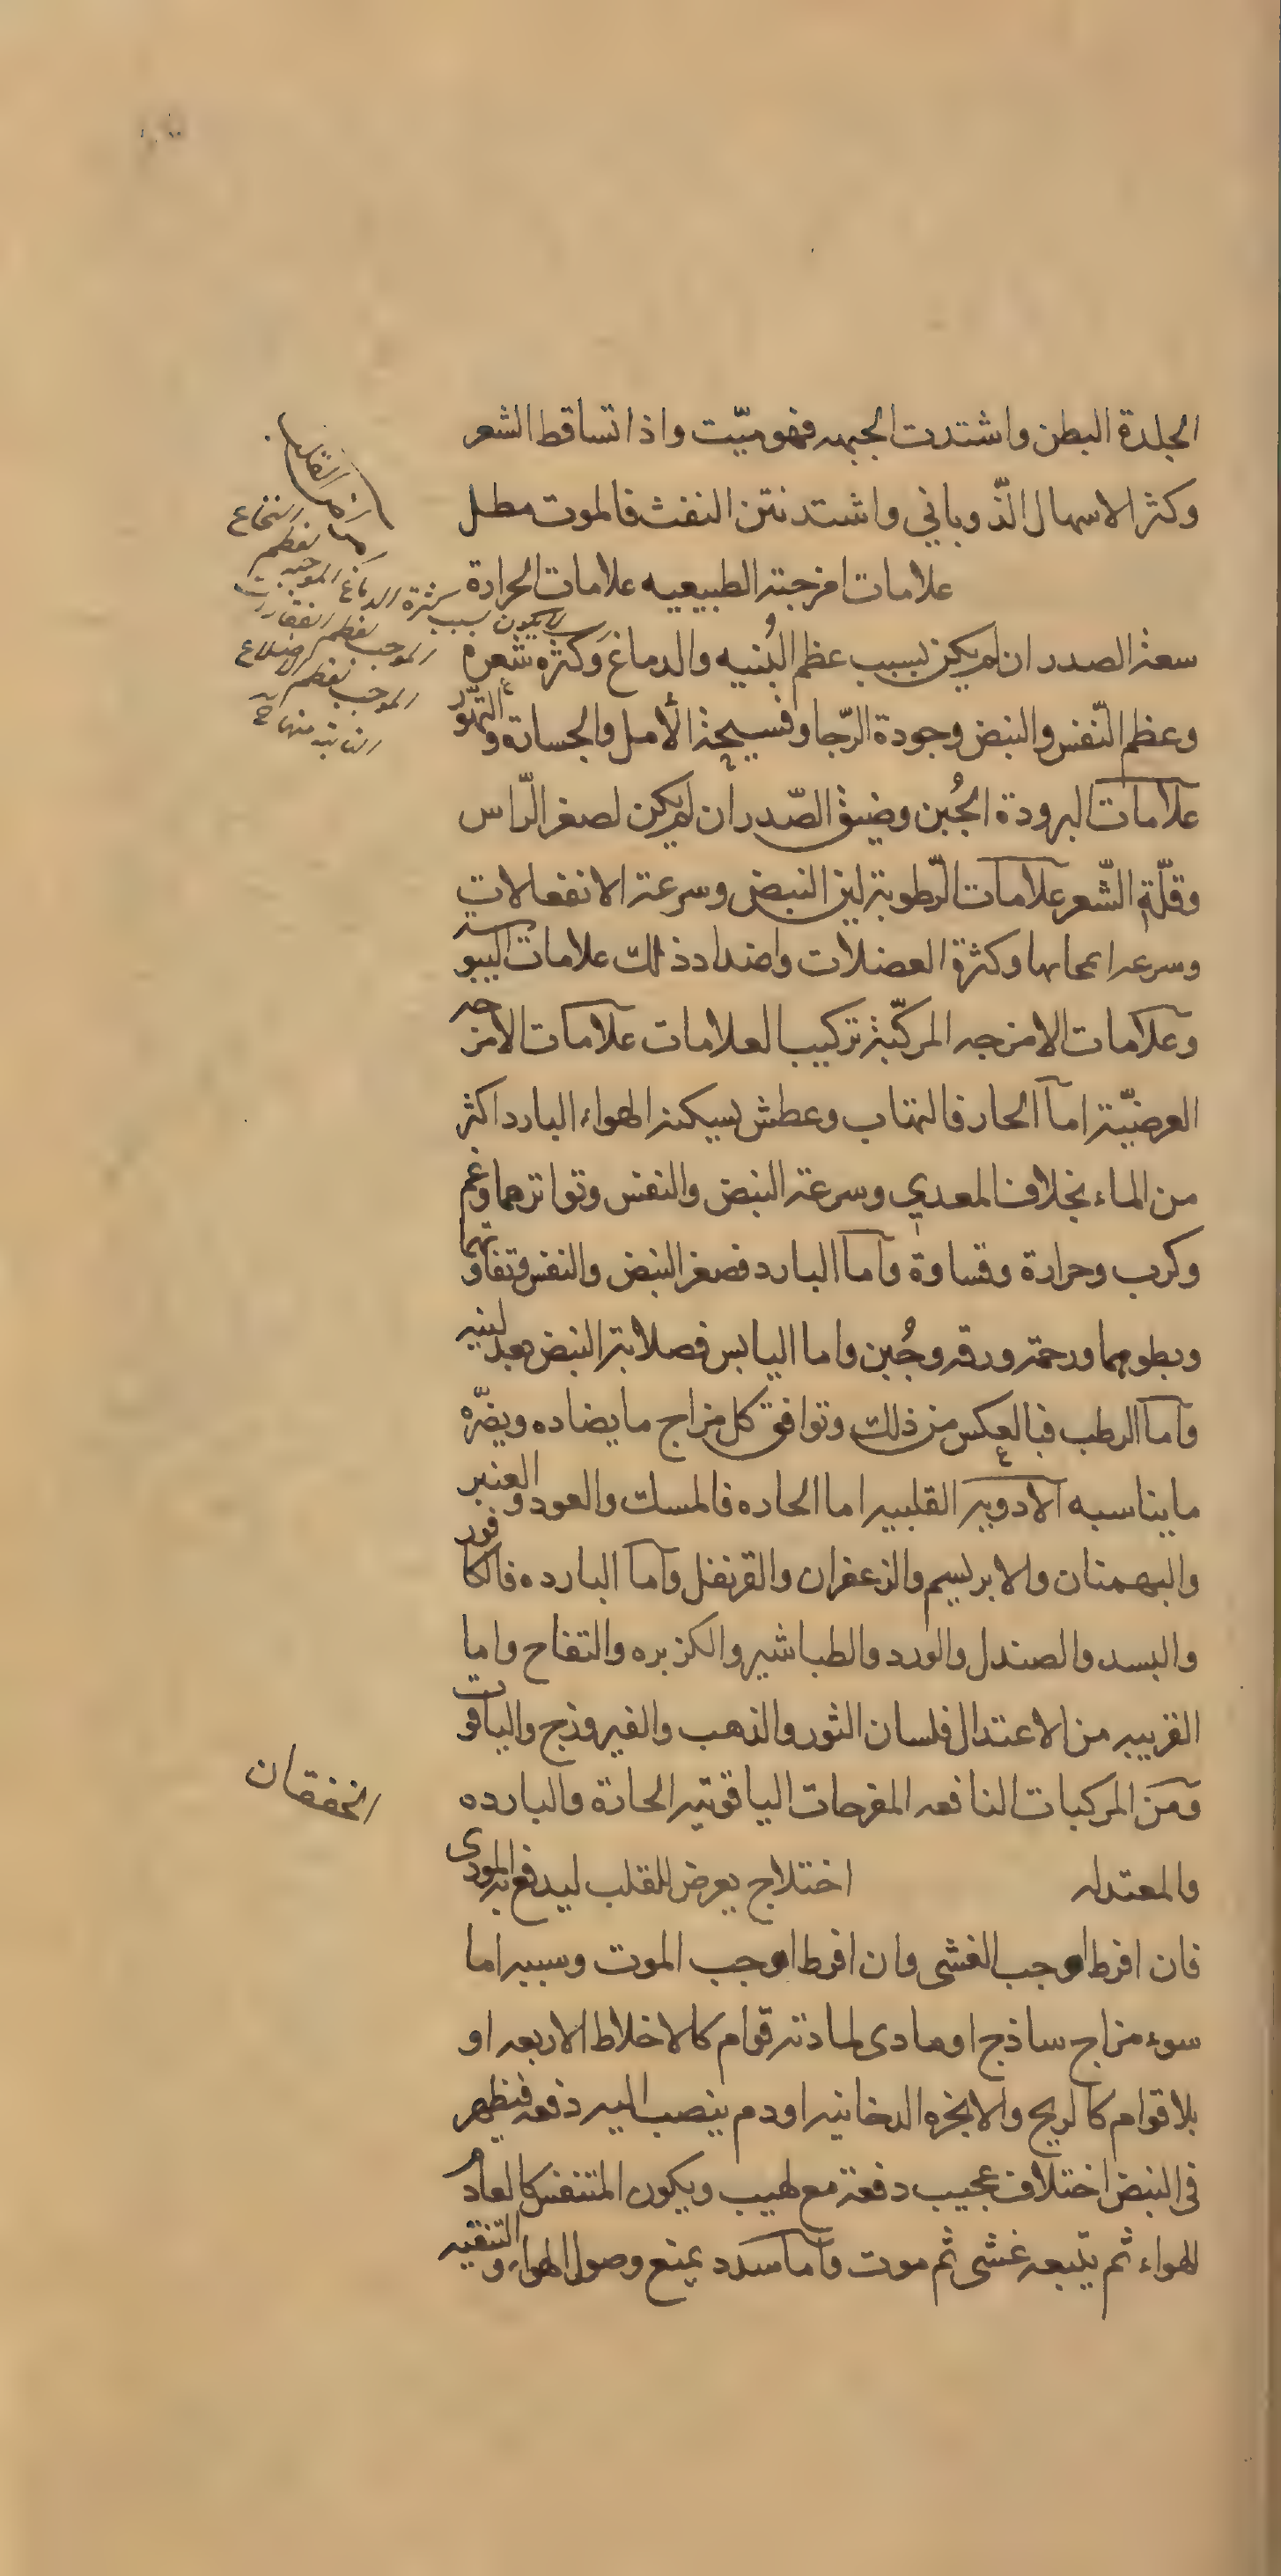 الجلدة البطن واشتدت الجبهه فهو ميّت واذا تساقط الشعر
وكثر الاسهال الذّوباني واشتد نتن النفث فالموت مطل
امراض القلب
علامات امزجته الطبيعيه علامات الحرارة
سعة الصدر ان لم يكن بسبب عظم البُنيه والدماغ وكثره شعره
لا يكون بسبب كثرة الدماغ الموجبة
لعظم النخاع
الموجب لعظم الفقارات
الموجب لعظم الاضلاع
النابتة منها
وعظم النّفس والنبض وجودة الرّجا وفسيحة الأمل والجسارة والتهوّر
علامات البرودة الجُبن وضيق الصّدر ان لم يكن لصغر الرّاس
وقلّة الشّعر علامات الرّطوبة لين النبض وسرعة الانفعالات
وسرعه امحائها وكثرة العضلات واضداد ذلك علامات اليبوسة
وعلامات الامزجه المركّبة تركيب العلامات علامات الامزجه
العرضيّة اما الحار فالتهاب وعطش يسكنه الهواء البارد اكثر
من الماء بخلاف المعدي وسرعة النبض والنفس وتواترهما وغم
وكرب وحرارة وقساوة واما البارد فصغر النبض والنفس وتفاوتهما
وبطوهما ورحمة ورقه وجُبن واما اليابس فصلابة النبض بعد لينه
واما الرطب فبالعكس من ذلك وتوافق كل مزاج ما يضاده ويضرّه
ما يناسبه الادويه القلبيه اما الحاره فالمسك والعود والعنبر
والبهمنان والابريسم والزعفران والقرنفل واما البارده فالكافور
والبسد والصندل والورد والطباشير والكزبره والتفاح واما
القريبه من الاعتدال فلسان الثور والذهب والفيروزج والياقوت
ومن المركبات النافعه المفرحات الياقوتيه الحارة والبارده
الخفقان
والمعتدله اختلاج يعرض للقلب ليدفع به المودى
فان افرط اوجب الغشى وان افرط اوجب الموت وسببه اما
سوء مزاج ساذج او مادى لمادته قوام كالاخلاط الاربعه او
بلا قوام كالريح والابخره الدخانيه او دم ينصب اليه دفعه فيظهر
فى النبض اختلاف عجيب دفعة مع لهيب ويكون المتنفس كالعادم
للهواء ثم يتبعه غشى ثم موت واما سدد يمنع وصول الهواء والتنقيه